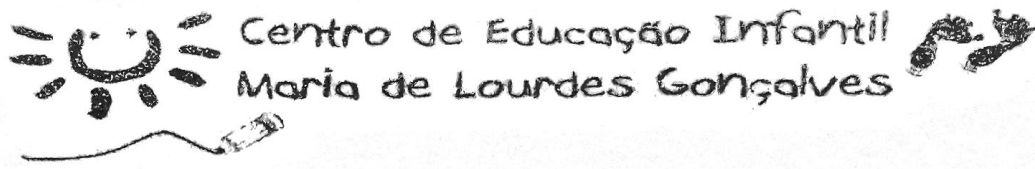 Centro de Educação Infantil
Maria de Lourdes Gonçalves